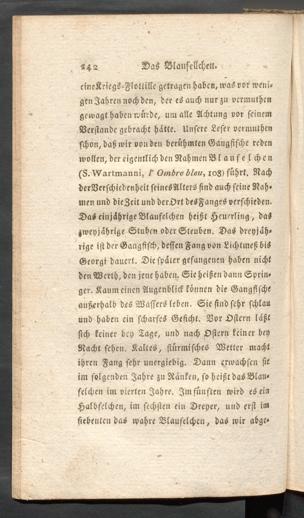 242 Das Blaufellchen.
eine Kriegs-Flottille getragen haben, was vor weni-
gen Jahren noch den, der es auch nur zu vermuthen
gewagt haben würde, um alle Achtung vor seinem
Verstande gebracht hätte. Unsere Leser vermuthen
schon, daß wir von den berühmten Gangfische reden
wollen, der eigentlich den Nahmen Blaufelchen
(S. Wartmanni, l' Ombre bleu, 108) führt. Nach
der Verschiedenheit seines Alters sind auch seine Nah-
men und die Zeit und der Ort des Fanges verschieden.
Das einjährige Blaufelchen heißt Heuerling, das
zweyjährige Stuben oder Steuben. Das dreyjäh-
rige ist der Gangfisch, dessen Fang von Lichtmeß bis
Georgi dauert. Die später gefangenen haben nicht
den Werth, den jene haben. Sie heißen dann Sprin-
ger. Kaum einen Augenblick können die Gangfische
außerhalb des Wassers leben. Sie sind sehr schlau
und haben ein scharfes Gesicht. Vor Ostern läßt
sich keiner bey Tage, und nach Ostern keiner bey
Nacht sehen. Kaltes, stürmisches Wetter macht
ihren Fang sehr unergiebig. Dann erwachsen sie
im folgenden Jahre zu Ränken, so heißt das Blau-
felchen im vierten Jahre. Im fünften wird es ein
Halbfelchen, im sechsten ein Dreyer, und erst im
siebenten das wahre Blaufelchen, das wir abge-